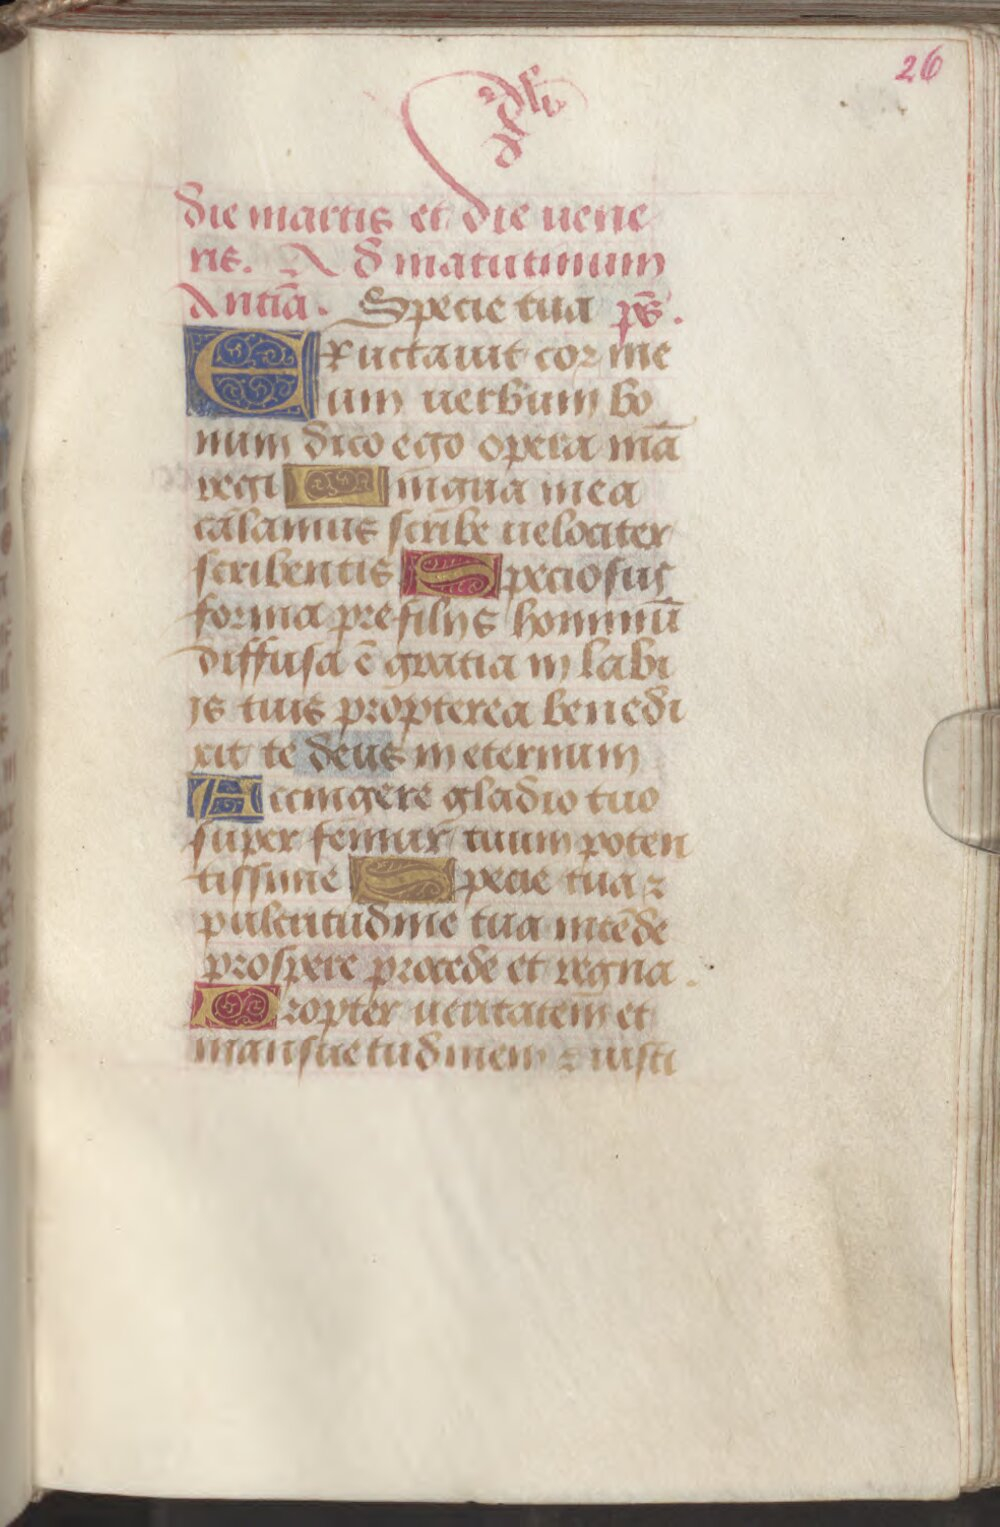 26
die martis et die uene
ris. Ad matutinum
Antiā. Specie tua ps̄.
Eructauit cor me
um uerbum bo
num dico ego opera mā
regi Lingua mea
calamus scribe uelociter
scribentis Speciosus
forma pre filijs hominū
diffusa ē gratia in labi
js tuis propterea benedi
xit te deus in eternum
Accingere gladio tuo
super femur tuum poten
tissime Specie tua ⁊
pulcritudine tua intēde
prospere procede et regna.
Propter ueritatem et
mansuetudinem ⁊ iusti